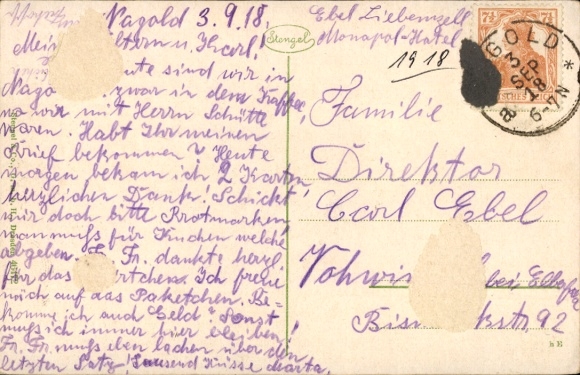 Nagold 3.9.18.
Meine Eltern u. Karl!
Heute sind wir in
Nagold, zwar in dem Kaffee,
wo wir mit Herrn Schütte
waren. Habt Ihr meinen
Brief bekommen? Heute
morgen bekam ich 2 Karten,
herzlichen Dank! Schickt
mir doch bitte Brotmarken,
man muß für Kuchen welche
abgeben. Fr. Fr. dankte herzl.
für das Kärtchen. Ich freue
mich auf das Paketchen. Be-
komme ich auch Geld? Sonst
muß ich immer hier bleiben!
Fr. Fr. muß eben lachen über den
letzten Satz! Tausend Küsse Marta.
Stengel
Ebel Liebenzell
Monopol-Hotel
1918
7½ 7½
DEUTSCHES REICH
NAGOLD
3 SEP
18
6-7 N
Familie
Direktor
Carl Ebel
Vohwinkel bei Elberfeld
Bismarckstr. 92